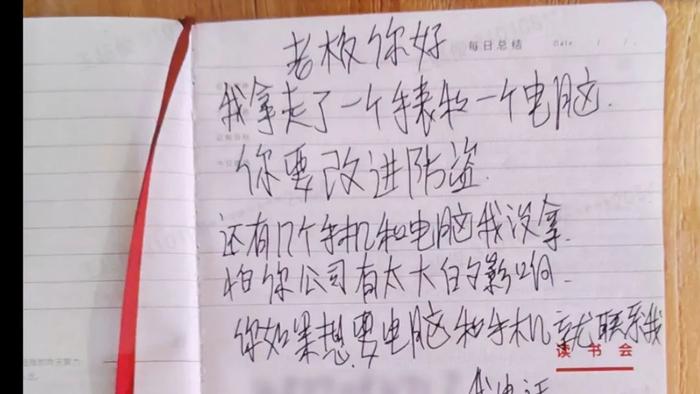 老板你好
每日总结
Date / /
我拿走了一个手表和一个电脑.
你要改进防盗.
还有几个手机和电脑我没拿.
怕你公司有太大的影响.
你如果想要电脑和手机就联系我
读书会
我电话